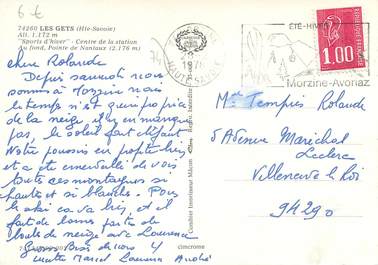 6 €
74260 LES GETS (Hte-Savoie)
Alt. 1.172 m
"Sports d'hiver" - Centre de la station
Au fond, Pointe de Nantaux (2.176 m)
chère Rolande
Depuis samedi nous
sommes à Morzine mais
le temps n'est guère propice
de la neige, il y en manque
pas, le soleil fait défaut
Notre poussin en profite bien
et a été émerveillé de voir
toutes ces montagnes si
hautes et si blanches. Pour
le ski ca va bien, et il
fait de bonnes parties de
boule de neige avec Laurence
Gros Bisous de nous 4
Marcel Laurence André
HAUTE-SAVOIE
ÉTÉ-HIVER
Morzine-Avoriaz
1,00
Me Tempiés Rolande
5 Avenue Maréchal
Leclerc
Villeneuve le Roi
94290
cimcrome